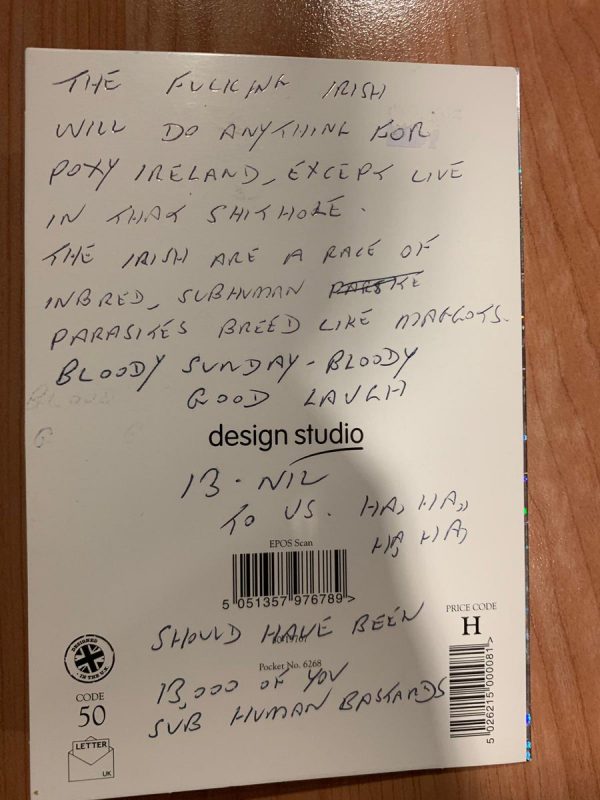 THE FUCKING IRISH
WILL DO ANYTHING FOR
POXY IRELAND, EXCEPT LIVE
IN THAT SHITHOLE.
THE IRISH ARE A RACE OF
INBRED, SUBHUMAN PARSITE
PARASITES BREED LIKE MAGGOTS.
BLOODY SUNDAY - BLOODY
GOOD LAUGH
design studio
13 - NIL
TO US. HA, HA,
HA, HA,
EPOS Scan
5 051357 976789 >
SHOULD HAVE BEEN
PRICE CODE
H
Pocket No. 6268
13,000 OF YOU
SUB HUMAN BASTARDS
DESIGNED
IN THE U.K
CODE
50
LETTER
UK
5 026215 000081 >